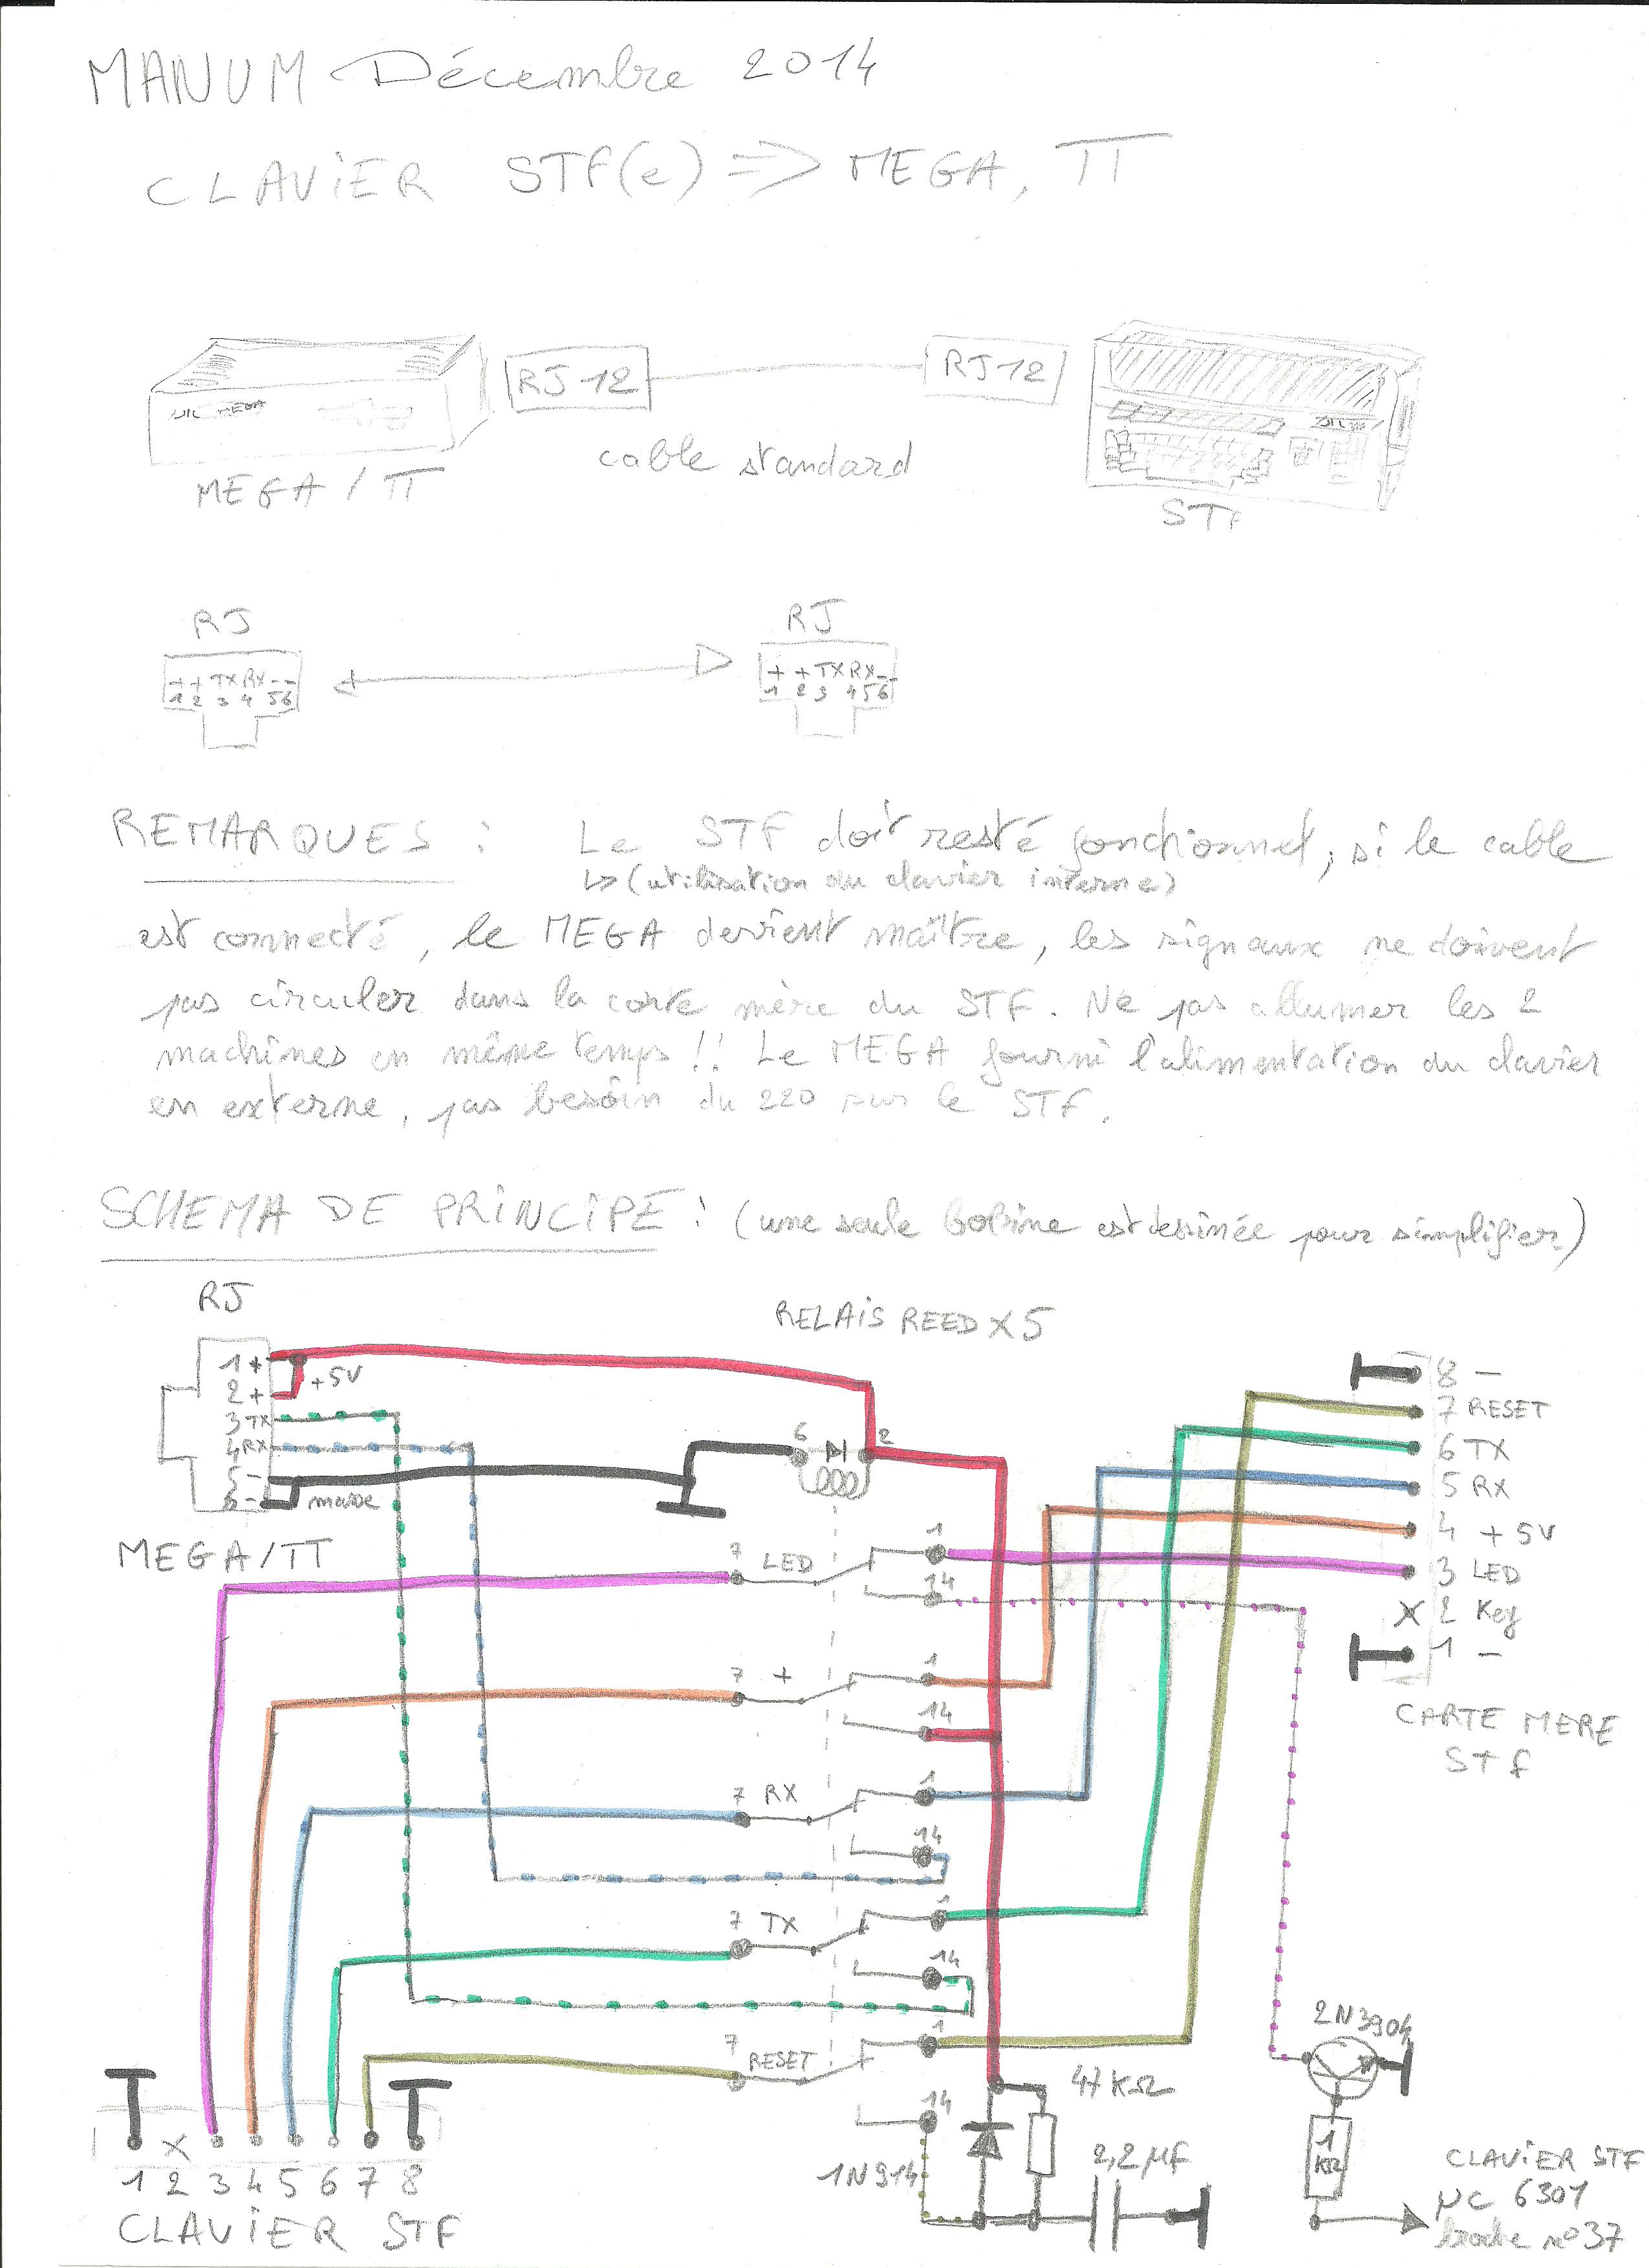 MANUM Décembre 2014
CLAVIER STF(e) => MEGA, TT
RJ12 RJ12
MEGA
cable standard
MEGA / TT STF
RJ RJ
+ + TX RX - - + + TX RX - -
1 2 3 4 5 6 1 2 3 4 5 6
REMARQUES : Le STF doit resté fonctionnel, si le cable
↳ (utilisation du clavier interne)
est connecté, le MEGA devient maître, les signaux ne doivent
pas circuler dans la carte mère du STF. Ne pas allumer les 2
machines en même temps !! Le MEGA fourni l'alimentation du clavier
en externe, pas besoin du 220 sur le STF.
SCHEMA DE PRINCIPE : (une seule bobine est dessinée pour simplifier)
RJ
RELAIS REED X 5
1 +
2 +
+5V
3 TX
4 RX
5 -
6 -
masse
MEGA/TT
6 2
8 -
7 RESET
6 TX
5 RX
4 +5V
3 LED
X 2 Key
1 -
CARTE MERE
STf
7 LED 1
14
7 + 1
14
7 RX 1
14
7 TX 1
14
7 RESET 1
14
47KΩ
1N914
2,2 µf
2N3904
1
KΩ
CLAVIER STF
µC 6301
broche n°37
X
1 2 3 4 5 6 7 8
CLAVIER STF